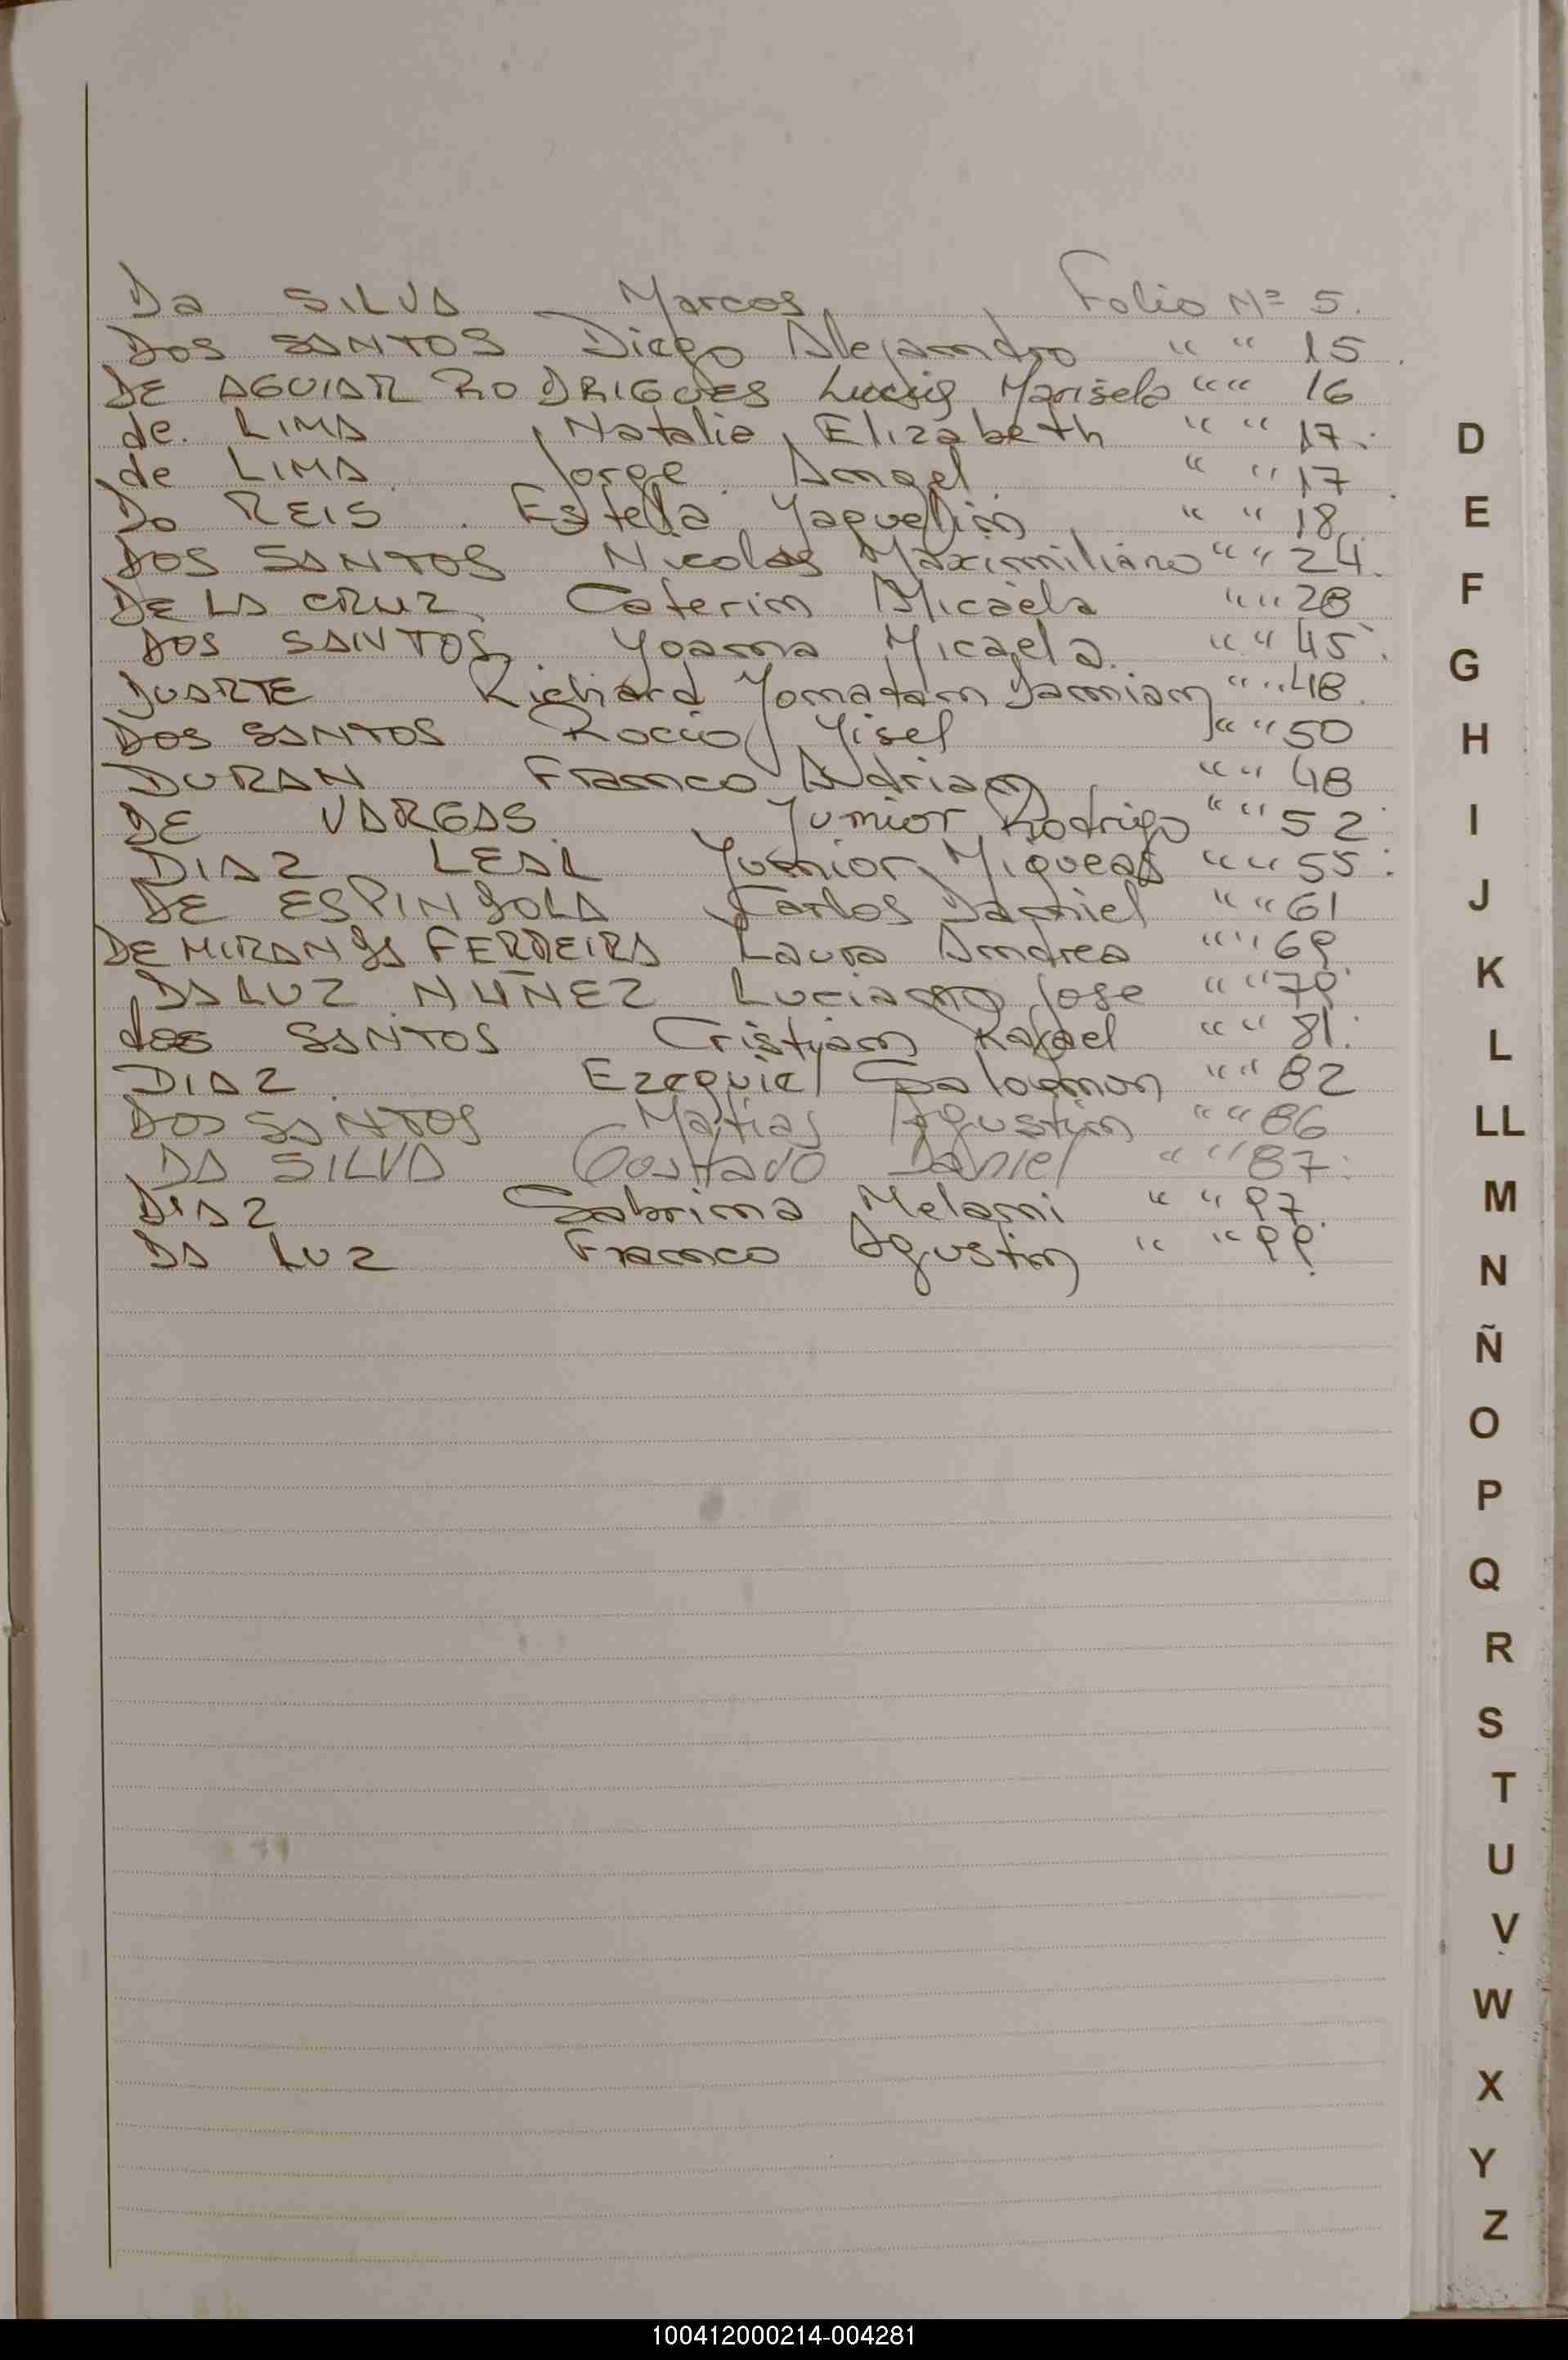 Da SILVA Marcos Folio Nº 5.
DOS SANTOS Diego Alejandro " " 15.
DE AGUIAR RODRIGUES Marisela " " 16
de. LIMA Natalia Elizabeth " " 17.
de LIMA Jorge Angel " " 17
Do REIS Estella Yaquelin " " 18
DOS SANTOS Nicolas Maximiliano " " 24.
DE LA CRUZ Caterin Micaela " " 28
DOS SANTOS Yoana Micaela " " 45.
DUARTE Richard Yonatan Damian " " 48.
DOS SANTOS Rocio Yisel " " 50
DURAN Franco Adrian " " 48
DE VARGAS Yunior Rodrigo " " 52
DIAZ LEAL Yunior Miqueas " " 55.
DE ESPINDOLA Carlos Daniel " " 61
DE MIRANDA FERREIRA Laura Andrea " " 69
DA LUZ NUÑEZ Luciano Jose " " 79
dos SANTOS Cristian Rafael " " 81.
DIAZ Ezequiel Salomon " " 82
DOS SANTOS Matias Agustin " " 86
DA SILVA Gustavo Daniel " " 87.
DIAZ Sabrina Melani " " 97.
DA LUZ Franco Agustin " " 99.
D
E
F
G
H
I
J
K
L
LL
M
N
Ñ
O
P
Q
R
S
T
U
V
W
X
Y
Z
100412000214-004281